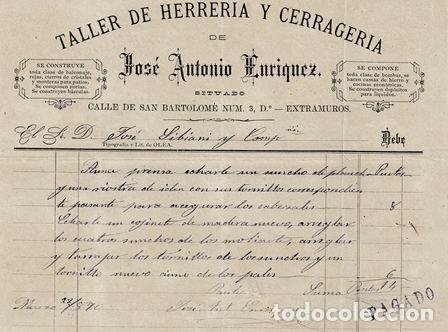 TALLER DE HERRERIA Y CERRAGERIA
DE
José Antonio Enriquez.
SITUADO
CALLE DE SAN BARTOLOMÉ NUM. 3, D.º — EXTRAMUROS.
SE CONSTRUYE
toda clase de balconaje,
rejas, cierros de cristales
y monteras para patios.
Se componen norias.
Se construyen básculas.
SE COMPONE
toda clase de bombas, se
hacen camas de hierro y
cocinas económicas.
Se construyen depósitos
para líquidos.
El Sr. D. José Bibiani y Comp
Debe
Tipografia y Lit. de OLEA.
A una prensa echarle un suncho de plancha Pesetas
y una riostra de idem con sus tornillos correspondien
te pasante para asegurar los cabezales 8
Echarle un cojinete de madera nuevo, arreglar
los cuatro sunchos de los molinete, arreglar
y tarrajar los tornillos de los sunchos y un
tornillo nuevo uno de los pales 6
Suma Pesetas 14
Marzo
José Ant
PAGADO
todocoleccion